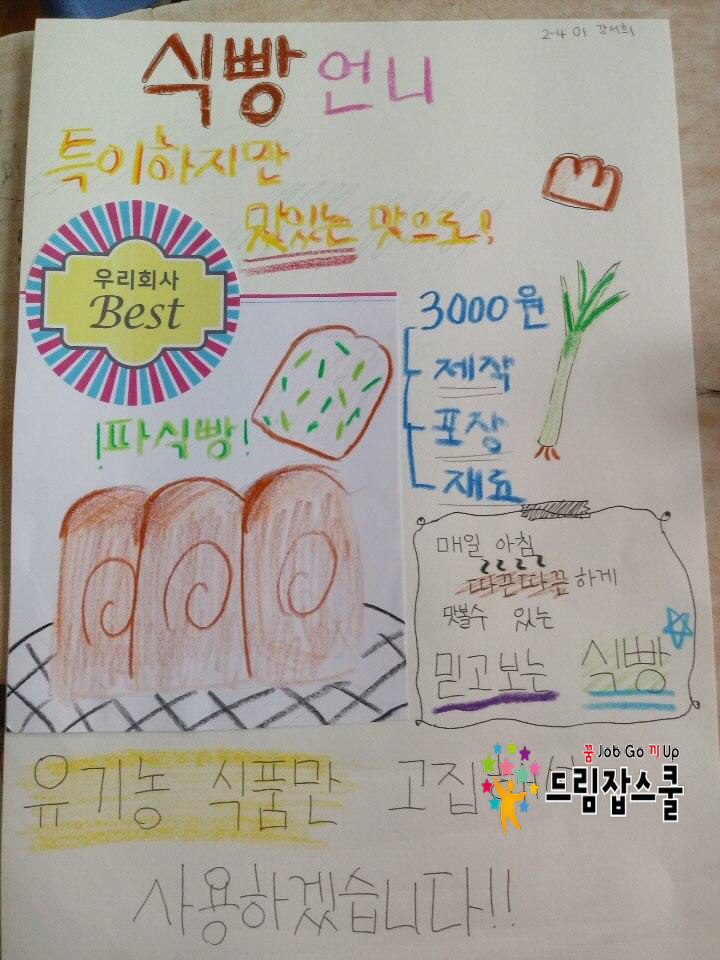 2-4 01 강서희
식빵 언니
특이하지만
맛있는 맛으로!
우리회사
Best
!파식빵!
3000원
제작
포장
재료
매일 아침
따끈따끈하게
맛볼수 있는
믿고보는 식빵
유기농 식품만 고집
꿈 Job Go 끼 Up
드림잡스쿨
사용하겠습니다!!